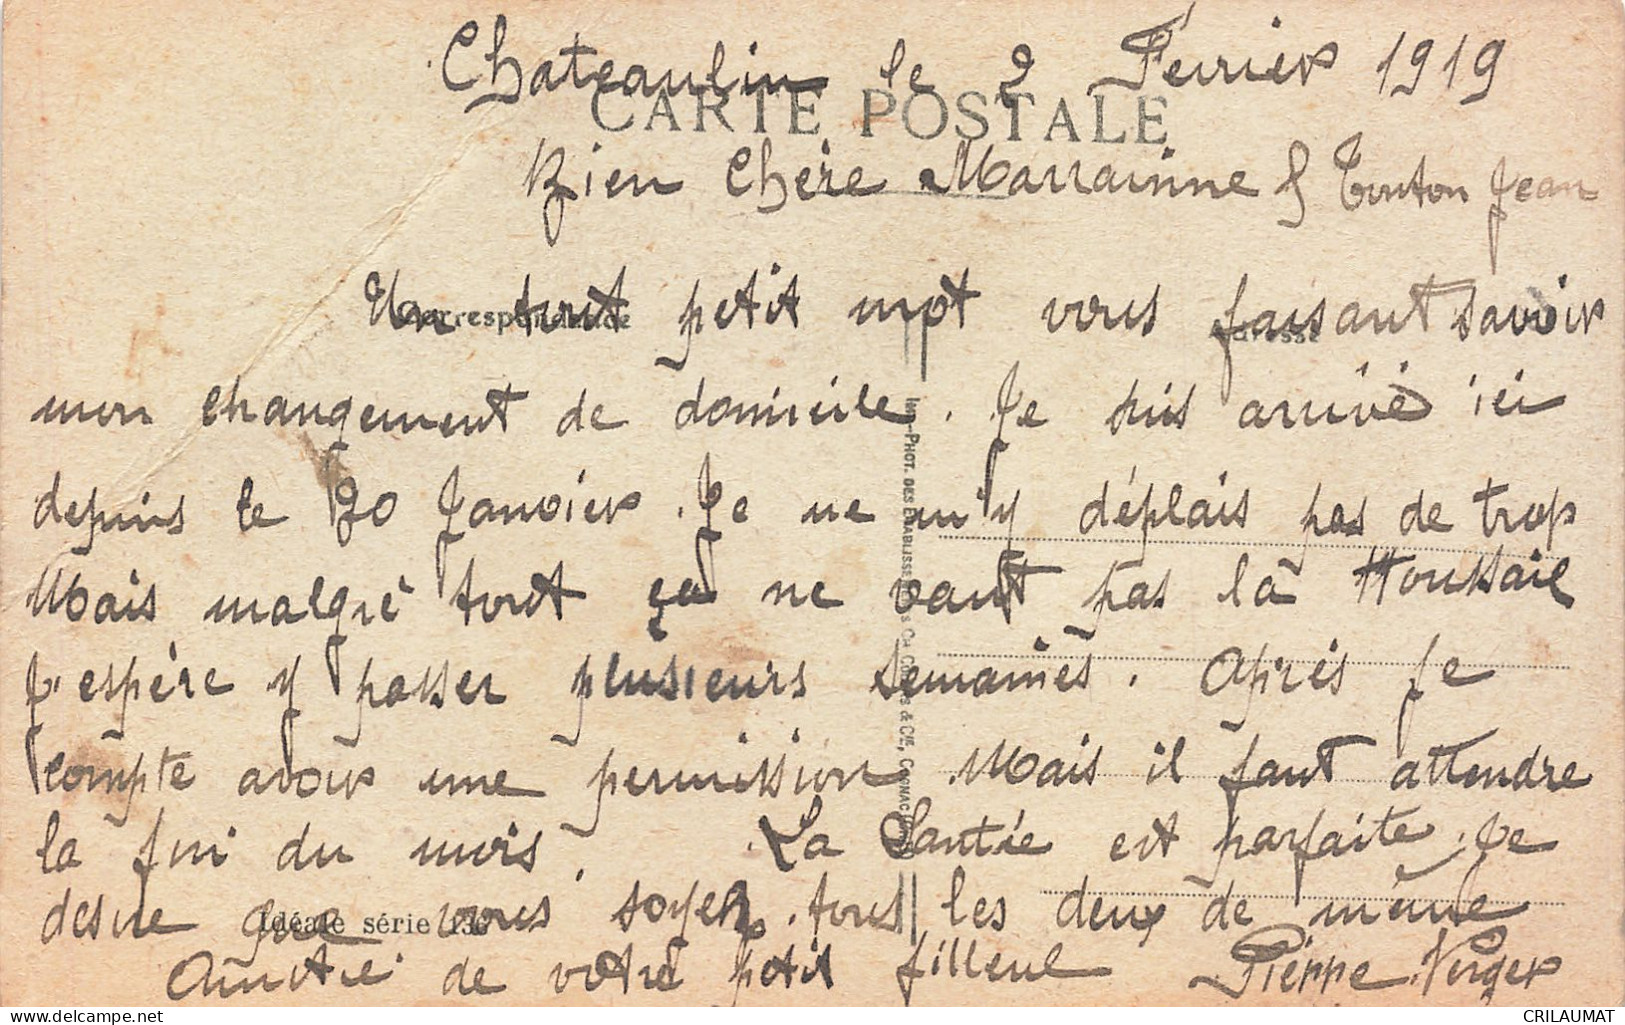 Chateaulin le 2 Fevrier 1919
CARTE POSTALE
Bien Chère Marrainne & Tonton Jean
Correspondance
Adresse
Un tout petit mot vous faisant savoir
mon changement de domicile. Je suis arrivé ici
depuis le 20 Janvier. Je ne m'y déplais pas de trop
Mais malgré tout ça ne vaut pas la Houssaie
J'espère y passer plusieurs semaines. Après je
compte avoir une permission Mais il faut attendre
la fin du mois. La Santée est parfaite. Je
desire que vous soyez tous les deux de même
Idéale série 136
Amitié de votre petit filleul Pierre Verger
Imp.-PHOT. DES ETABLISSEMENTS COLLAS & Cie, COGNAC
CRILAUMAT